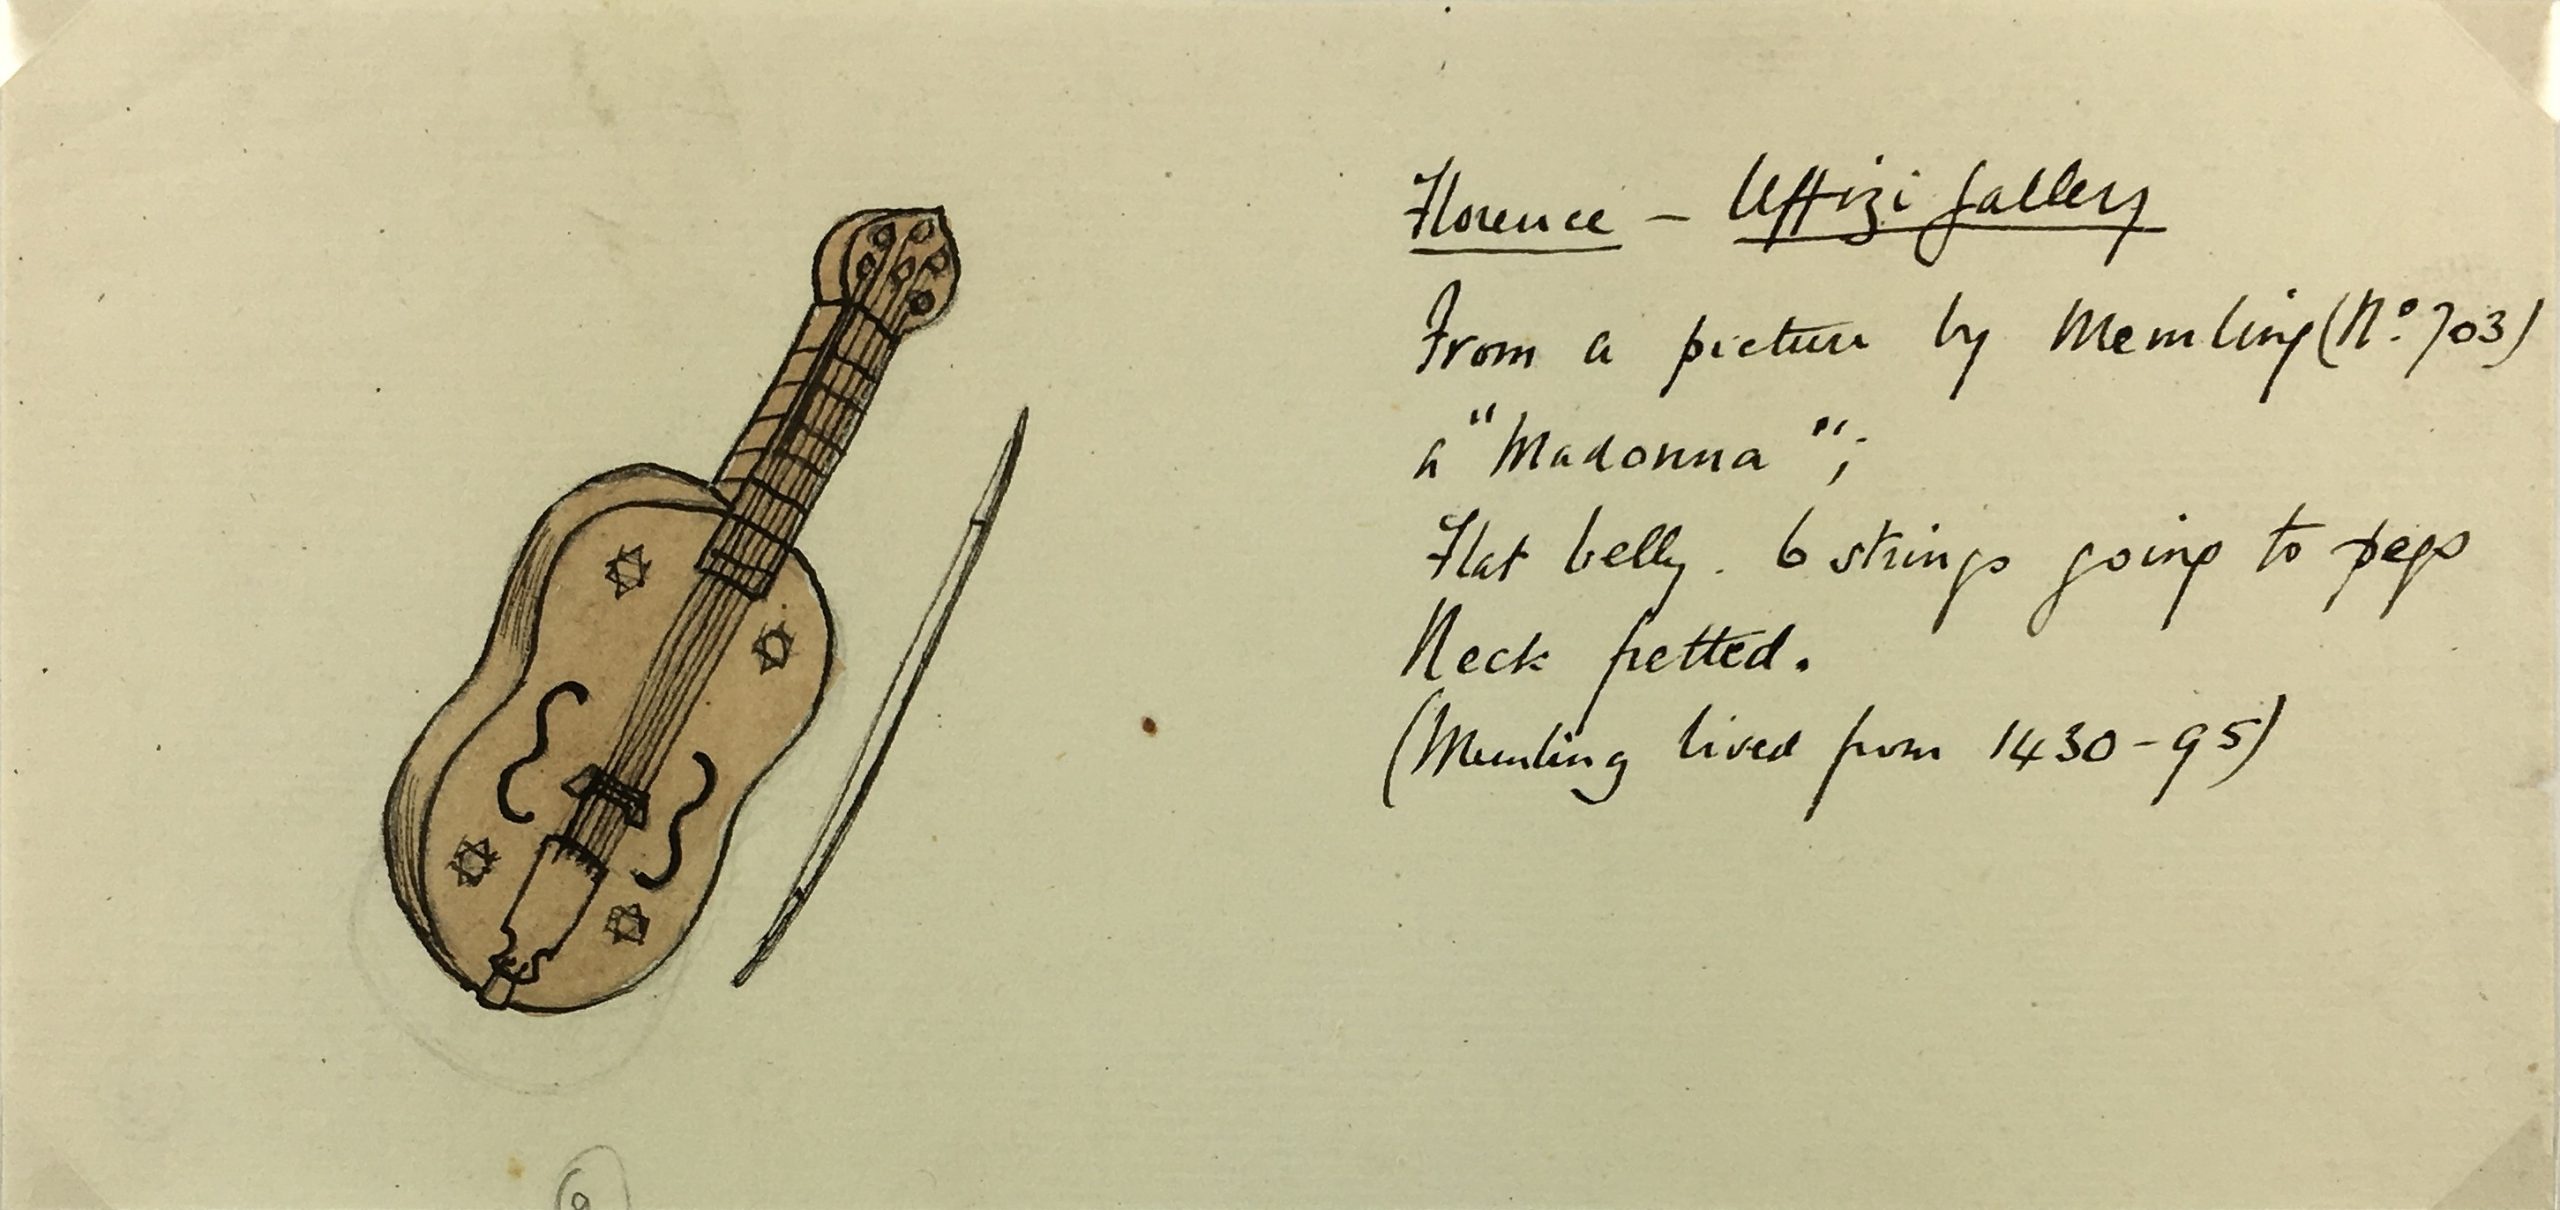 Florence – Uffizi Gallery
From a picture by Memling (No. 703)
a "Madonna";
Flat belly. 6 strings going to pegs
Neck fretted.
(Memling lived from 1430-95)